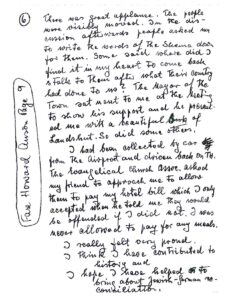 ⑥ There was great applause. The people
were visibly moved. In the dis-
cussion afterwards people asked me
to write the words of the Shema down
for them. Some said where did I
find it in my heart to come back
& talk to them after what their country
had done to us? The Mayor of the
Town sat next to me at the Meeting
to show his support and he present-
ed me with a beautiful book of
Landshut. So did some others.
I had been collected by car
from the Airport and driven back to it.
The Evangelical Church Assoc. asked
my friend to approach me to allow
them to pay my hotel bill which I only
accepted when he told me they would
be offended if I did not. I was
never allowed to pay for any meals.
I really felt very proud.
I think I have contributed to
history and
I hope I have helped to
bring about Jewish-German re-
conciliation.
Fax: Howard Page 9